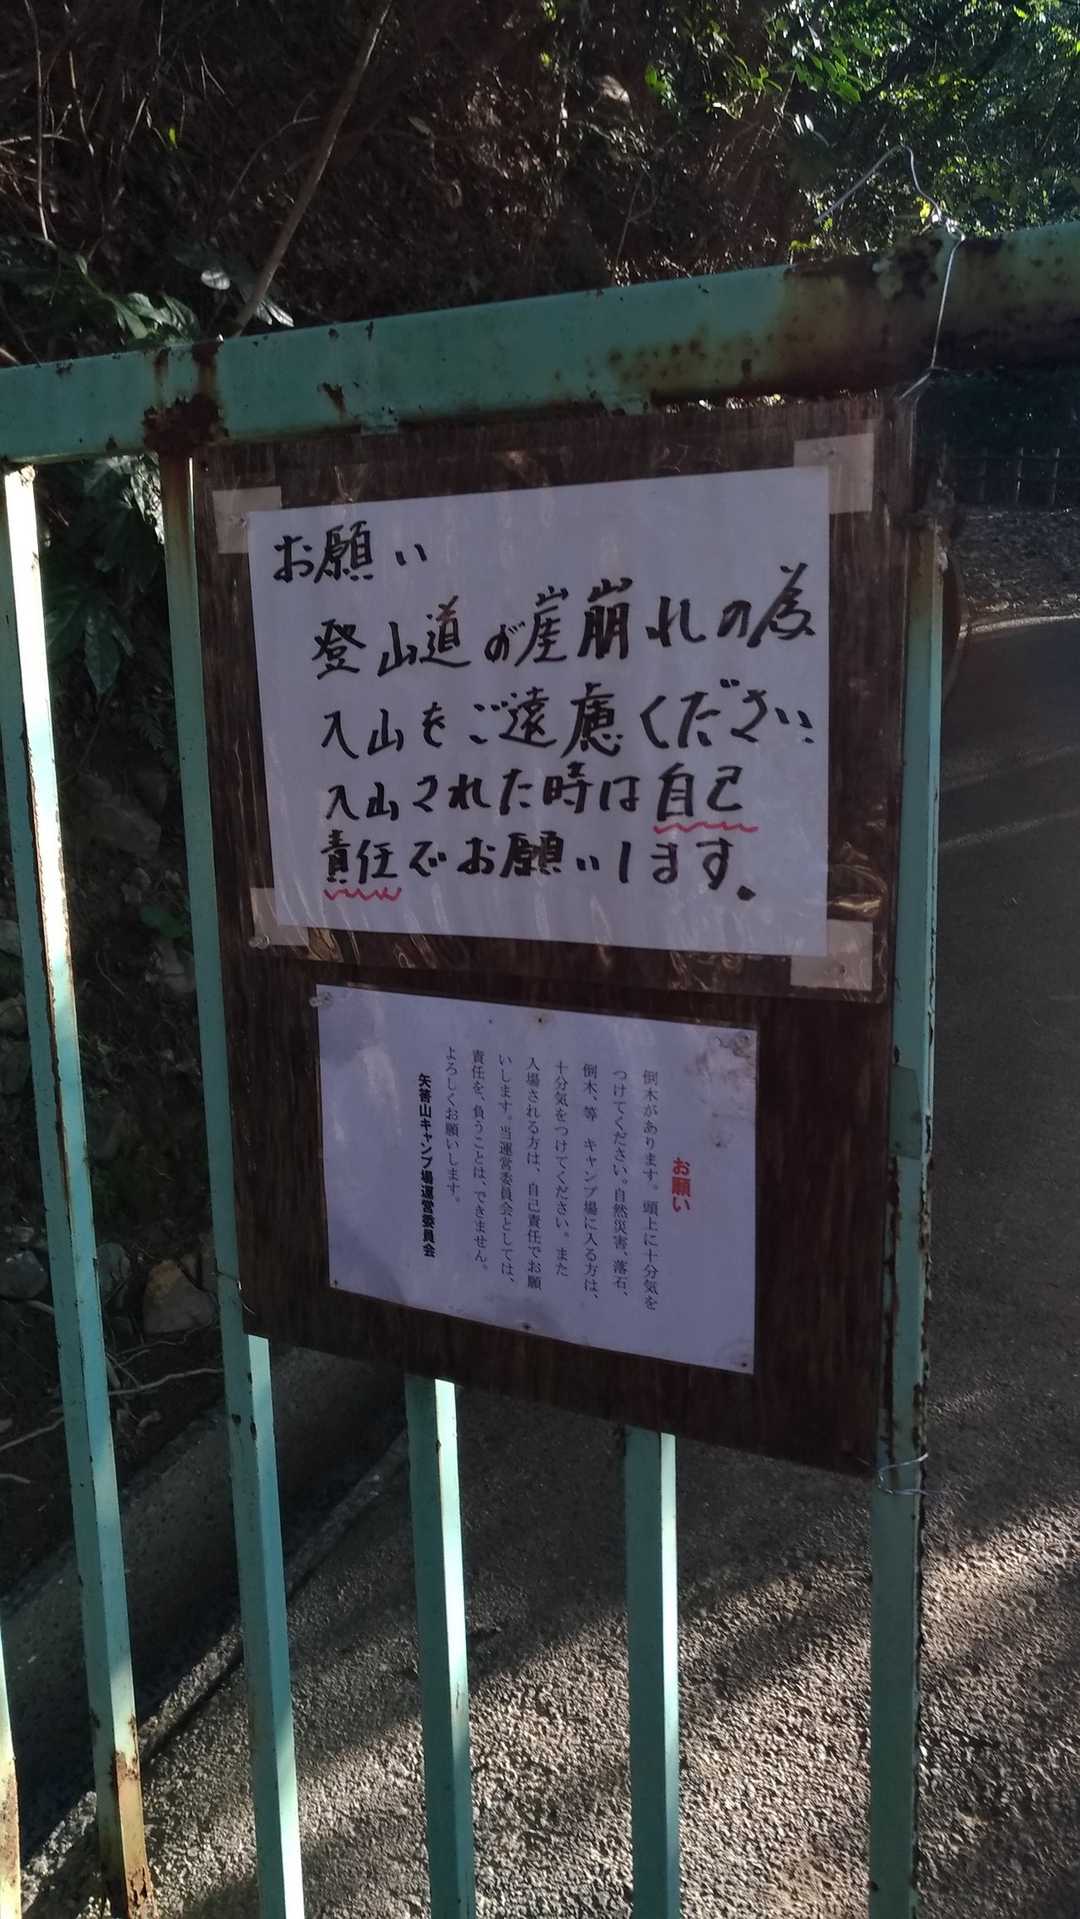 お願い
登山道が崖崩れの為
入山をご遠慮ください
入山された時は自己
責任でお願いします。
お願い
倒木があります。頭上に十分気を
つけてください。自然災害、落石、
倒木、等　キャンプ場に入る方は、
十分気をつけてください。また
入場される方は、自己責任でお願
いします。当運営委員会としては、
責任を、負うことは、できません。
よろしくお願いします。
矢筈山キャンプ場運営委員会